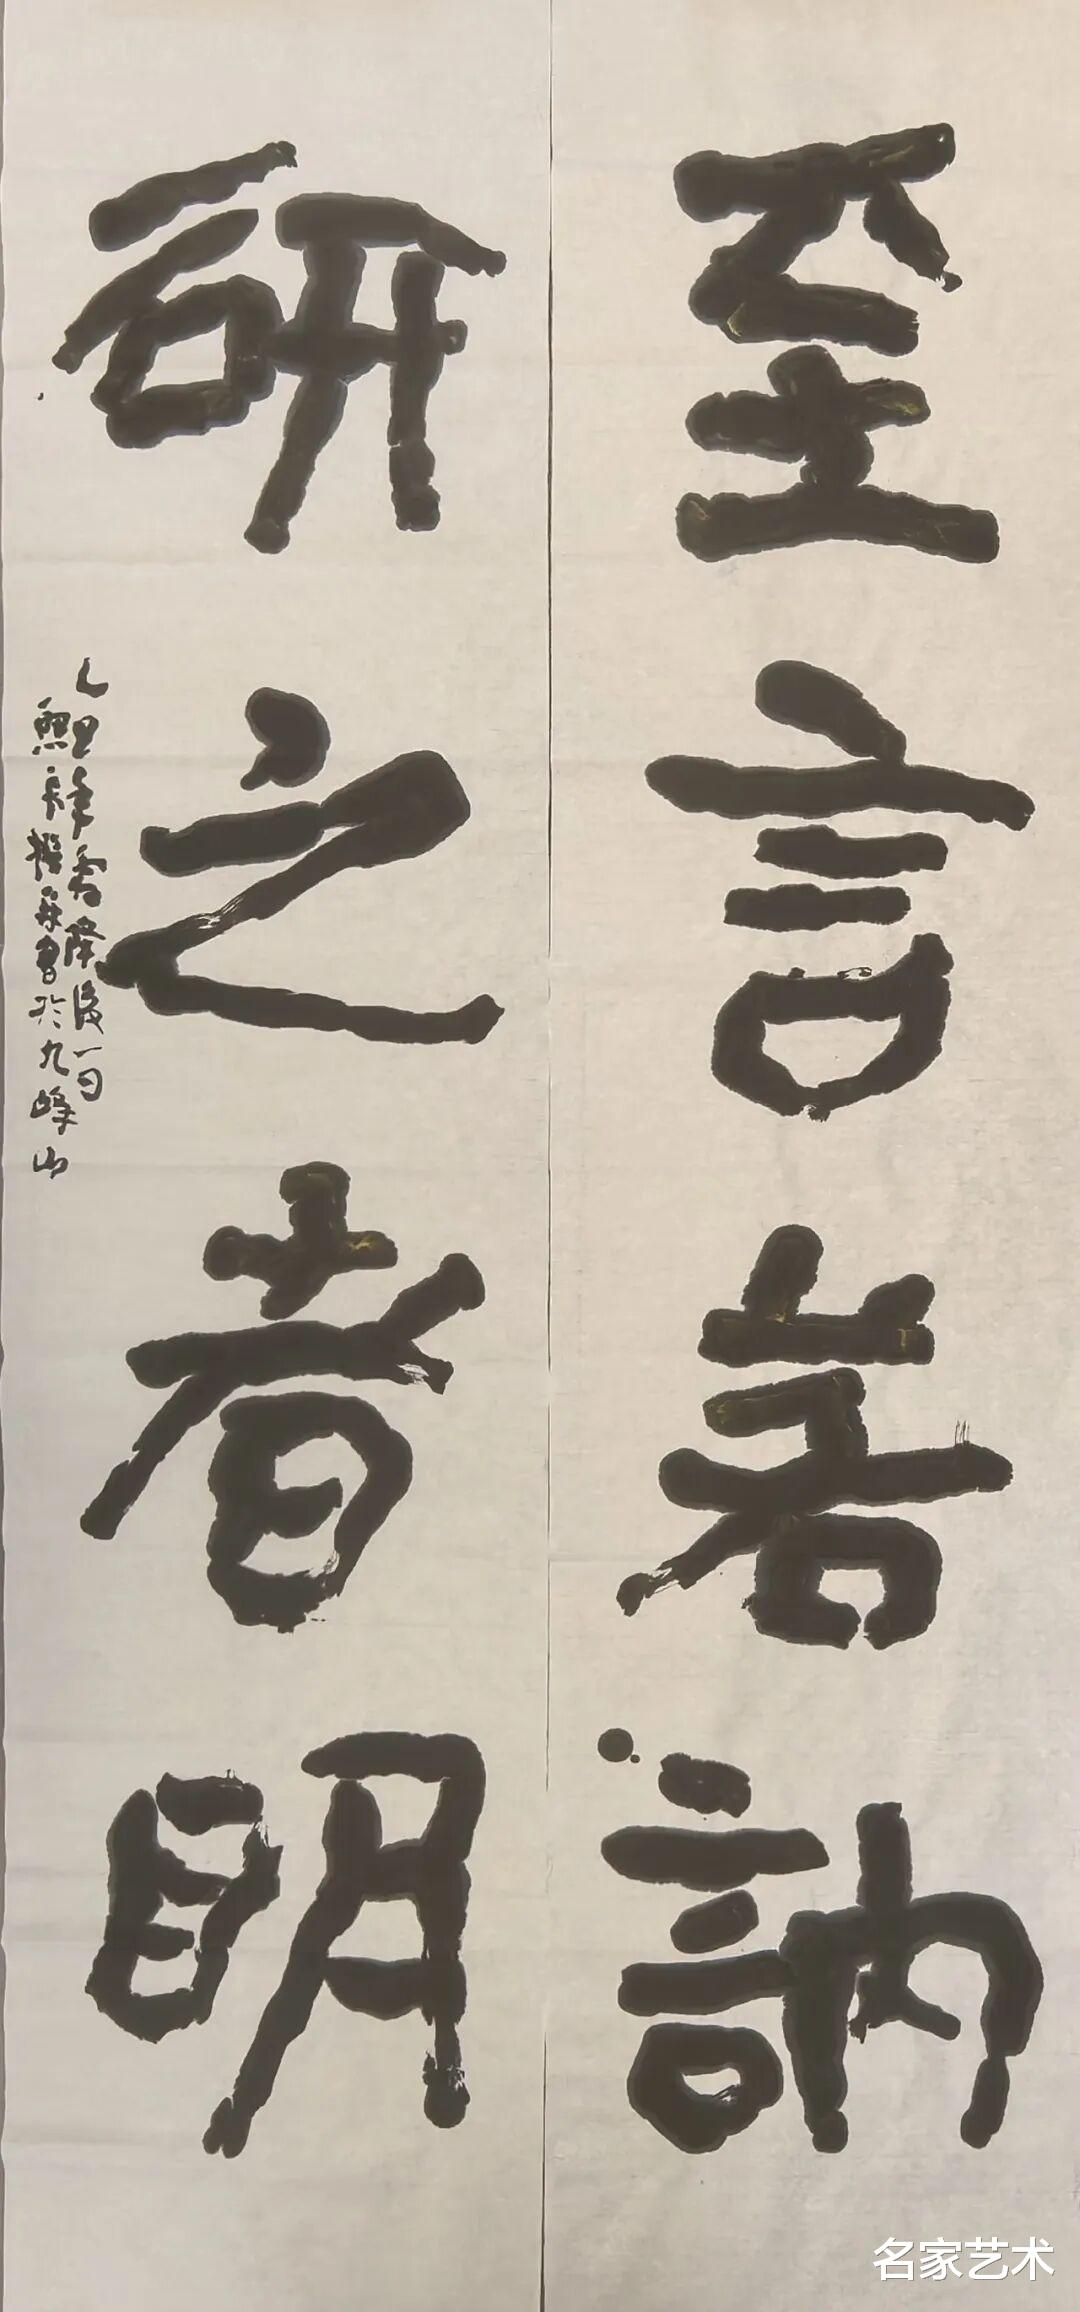 至言若訥
研之者明
乙巳年霜降後一日
熙永撰并書於九峰山
名家艺术